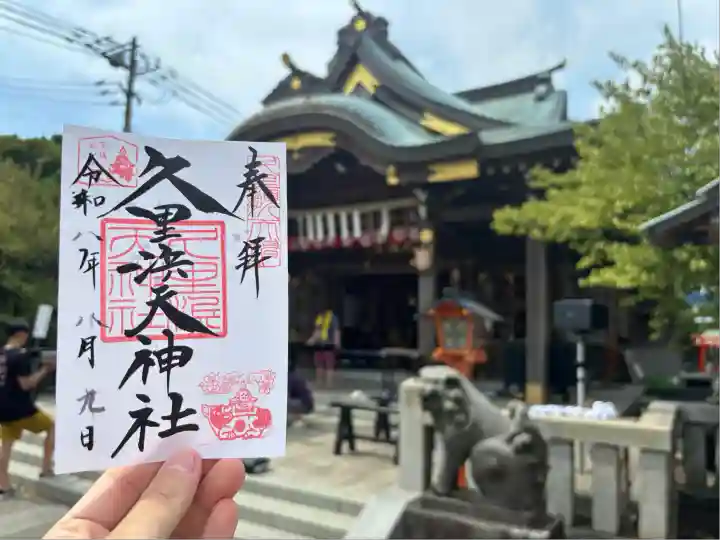 奉拝
久里浜天神社
令和八年八月九日